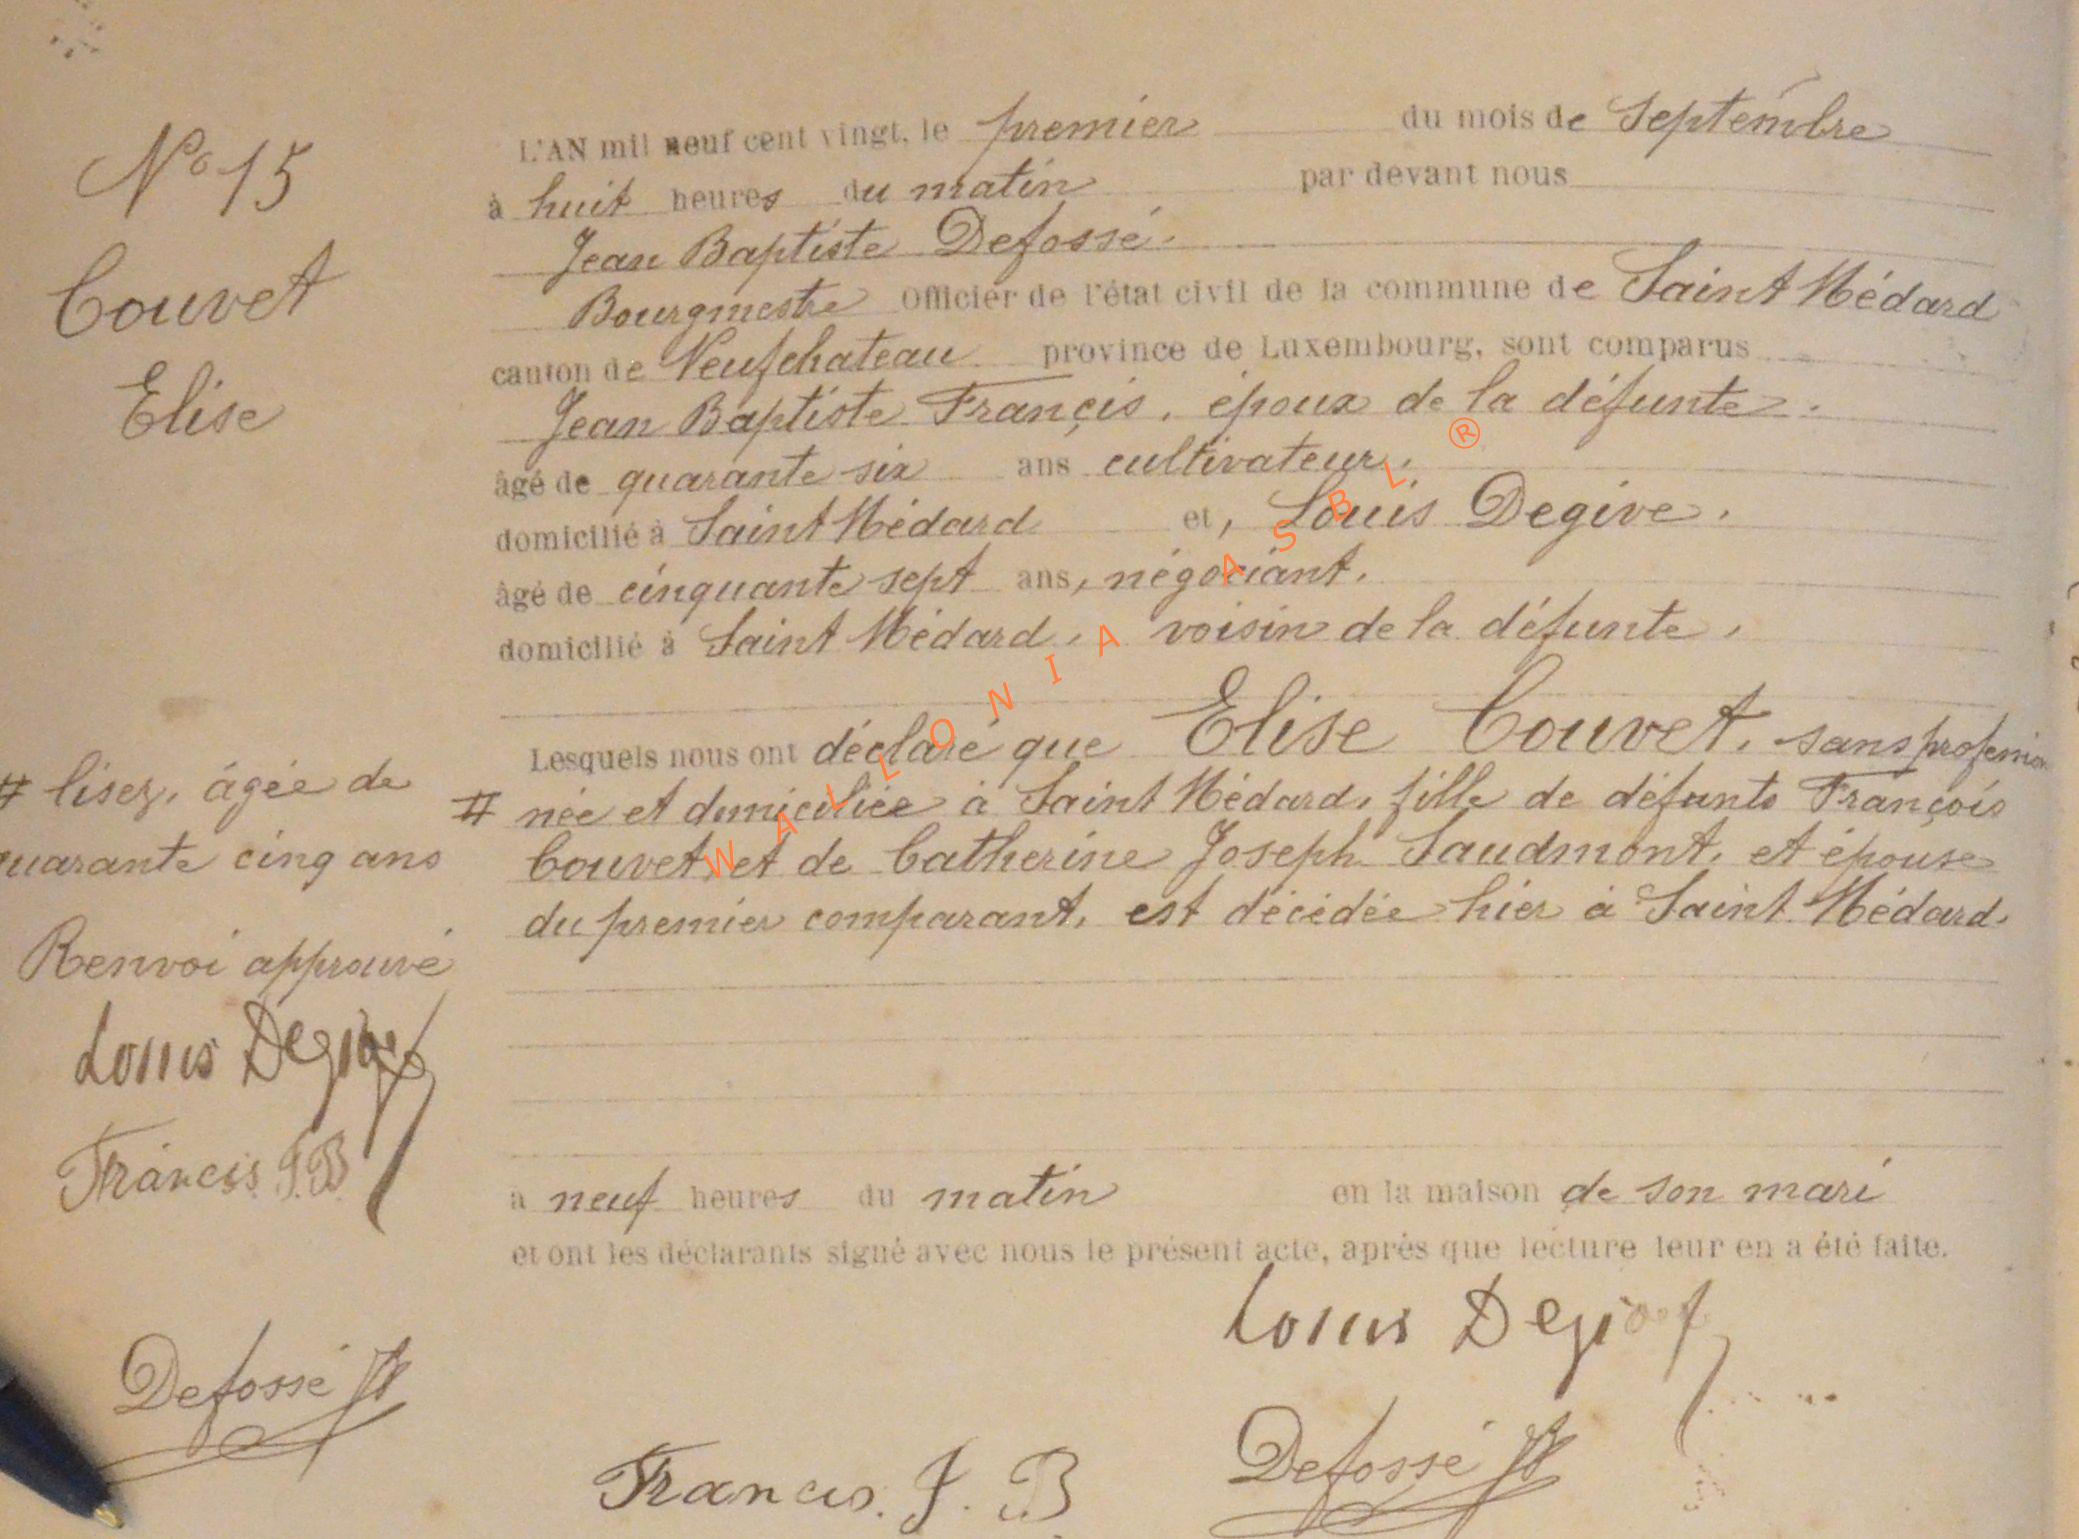 N° 15
Couvet
Elise
L'AN mil neuf cent vingt, le premier du mois de Septembre
à huit heures du matin par devant nous
Jean Baptiste Defossé.
Bourgmestre Officier de l'état civil de la commune de Saint Médard
canton de Neufchateau province de Luxembourg, sont comparus
Jean Baptiste Françis, époux de la défunte.
âgé de quarante six ans cultivateur,
domicilié à Saint Médard et, Louis Degive,
âgé de cinquante sept ans, négociant,
domicilié à Saint Médard, voisin de la défunte,
Lesquels nous ont déclaré que Elise Couvet, sans profession
# née et domiciliée à Saint Médard, fille de défunts François
Couvet, et de Catherine Joseph Saudmont, et épouse
du premier comparant, est décédée hier à Saint Médard,
# lisez, âgée de
quarante cinq ans
Renvoi approuvé
Louis Degive
Francis J.B
Defossé JB
à neuf heures du matin en la maison de son mari
et ont les déclarants signé avec nous le présent acte, après que lecture leur en a été faite.
Louis Degive
Defossé JB
Francis. J. B
WALLONIA ASBL ®